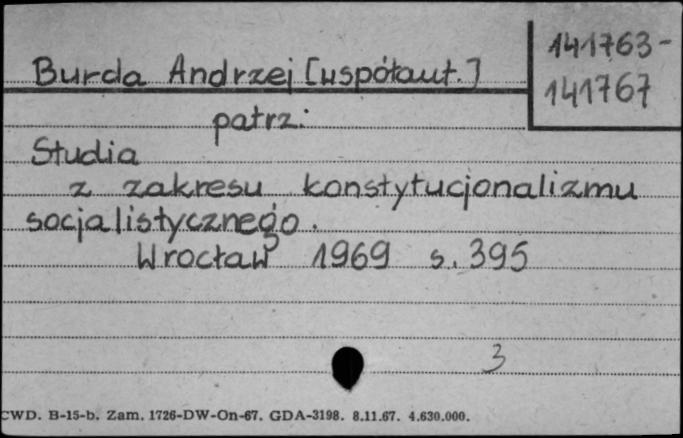 141763-
141767
Burda Andrzej [współaut.]
patrz:
Studia
z zakresu konstytucjonalizmu
socjalistycznego.
Wrocław 1969 s. 395
3
CWD. B-15-b. Zam. 1726-DW-On-67. GDA-3198. 8.11.67. 4.630.000.